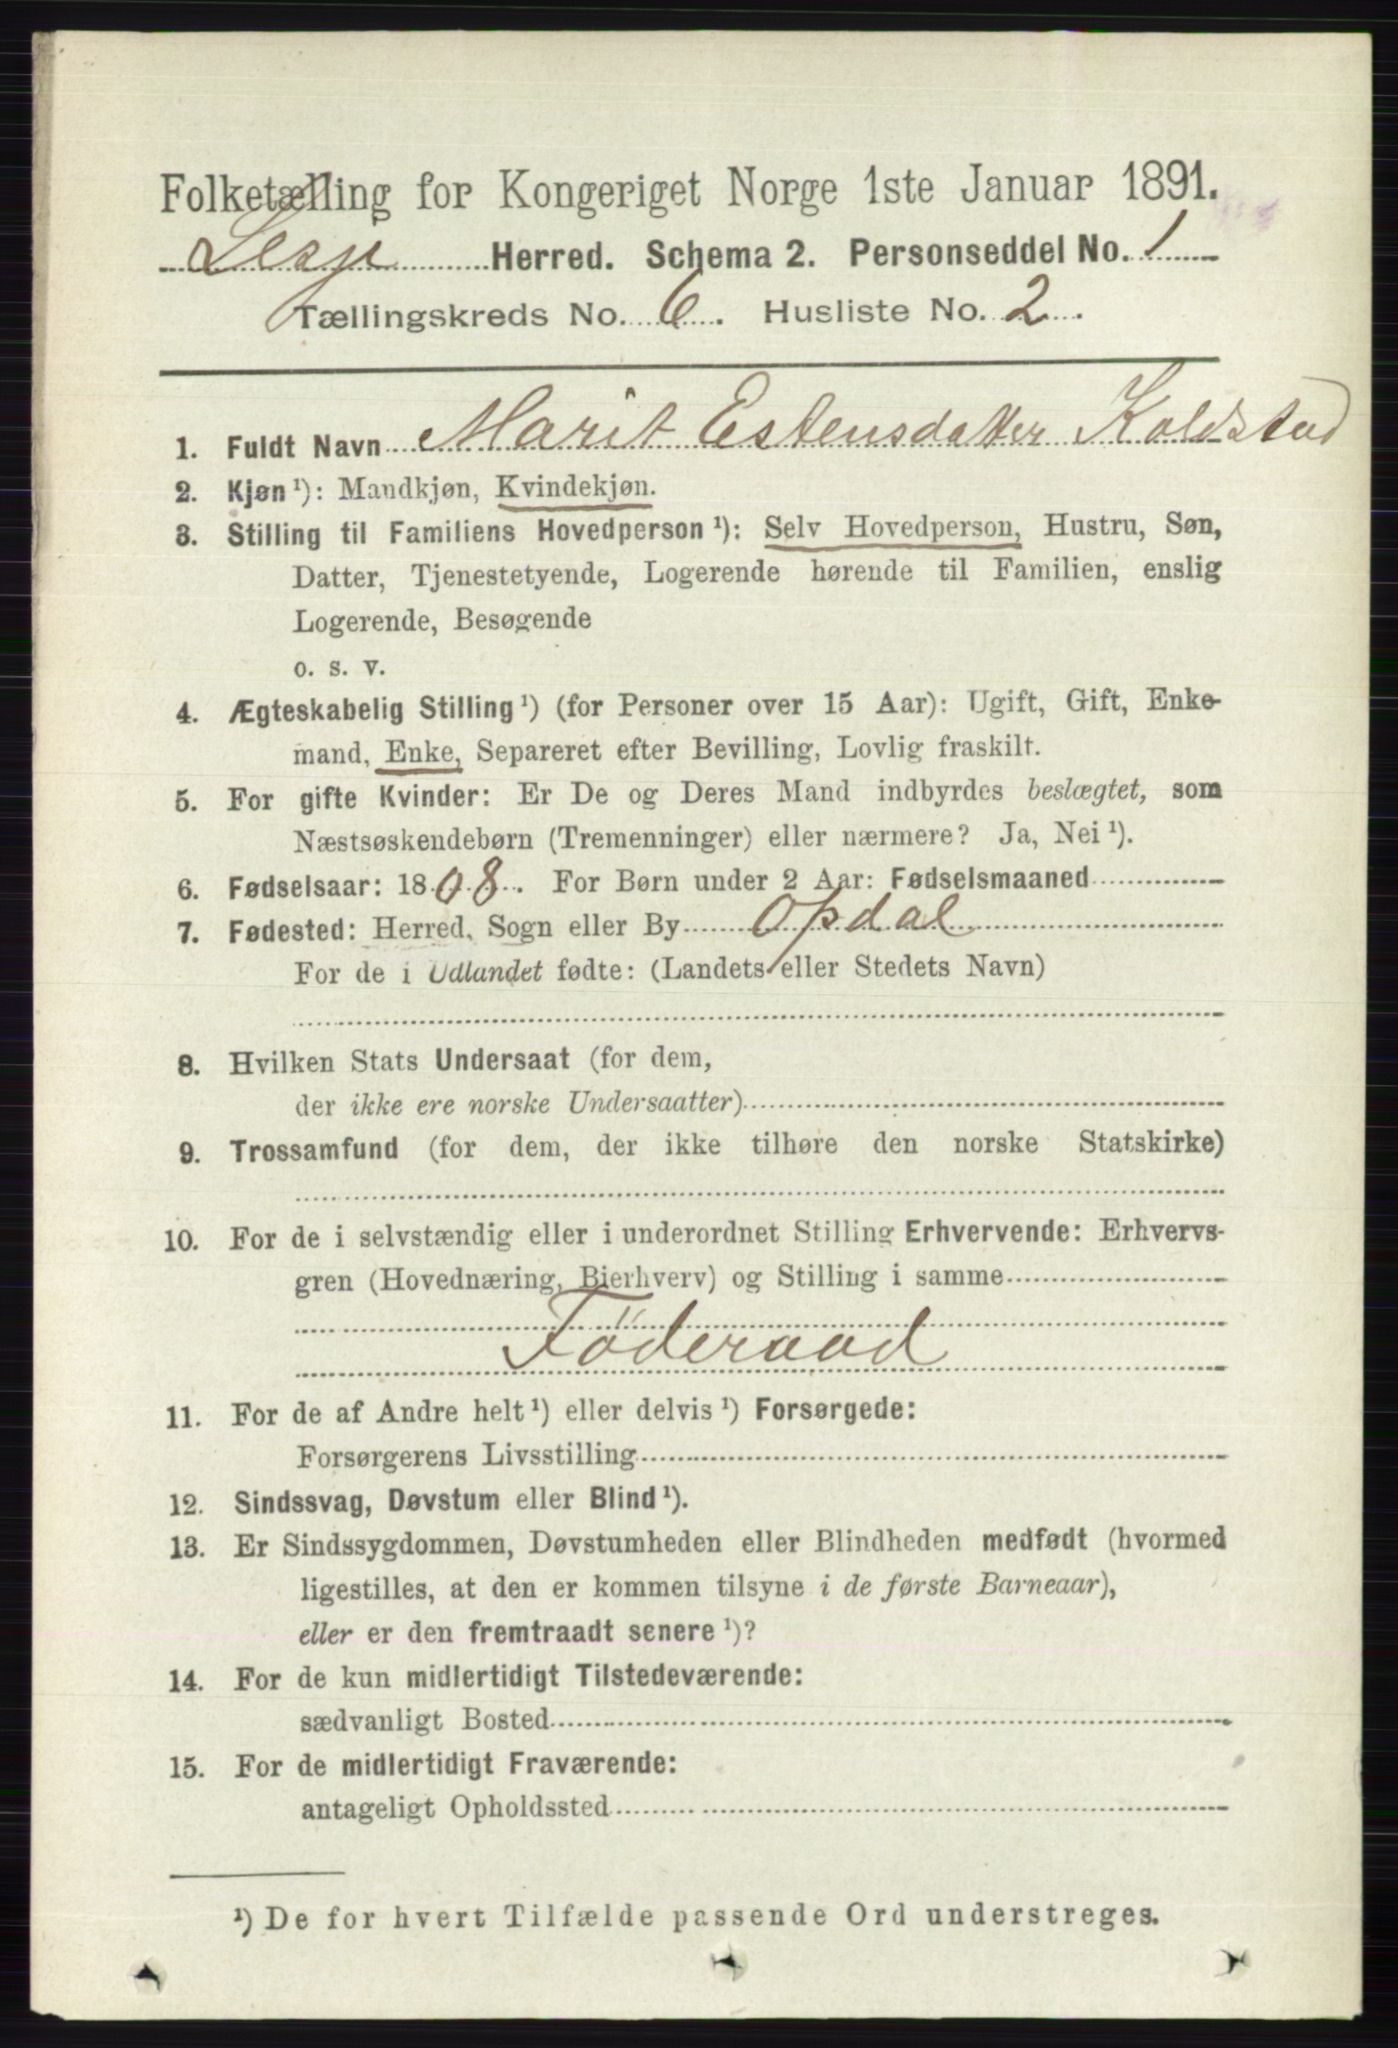 Folketælling for Kongeriget Norge 1ste Januar 1891.
Lesje Herred. Schema 2. Personseddel No. 1
Tællingskreds No. 6. Husliste No. 2.
1. Fuldt Navn Marit Estensdatter Koldstad
2. Kjøn ¹): Mandkjøn, Kvindekjøn.
3. Stilling til Familiens Hovedperson ¹): Selv Hovedperson, Hustru, Søn,
Datter, Tjenestetyende, Logerende hørende til Familien, enslig
Logerende, Besøgende
o. s. v.
4. Ægteskabelig Stilling ¹) (for Personer over 15 Aar): Ugift, Gift, Enke-
mand, Enke, Separeret efter Bevilling, Lovlig fraskilt.
5. For gifte Kvinder: Er De og Deres Mand indbyrdes beslægtet, som
Næstsøskendebørn (Tremenninger) eller nærmere? Ja, Nei ¹).
6. Fødselsaar: 1808. For Børn under 2 Aar: Fødselsmaaned
7. Fødested: Herred, Sogn eller By Opdal
For de i Udlandet fødte: (Landets eller Stedets Navn)
8. Hvilken Stats Undersaat (for dem,
der ikke ere norske Undersaatter)
9. Trossamfund (for dem, der ikke tilhøre den norske Statskirke)
10. For de i selvstændig eller i underordnet Stilling Erhvervende: Erhvervs-
gren (Hovednæring, Bierhverv) og Stilling i samme
Föderaad
11. For de af Andre helt ¹) eller delvis ¹) Forsørgede:
Forsørgerens Livsstilling
12. Sindssvag, Døvstum eller Blind ¹).
13. Er Sindssygdommen, Døvstumheden eller Blindheden medfødt (hvormed
ligestilles, at den er kommen tilsyne i de første Barneaar),
eller er den fremtraadt senere ¹)?
14. For de kun midlertidigt Tilstedeværende:
sædvanligt Bosted
15. For de midlertidigt Fraværende:
antageligt Opholdssted
¹) De for hvert Tilfælde passende Ord understreges.